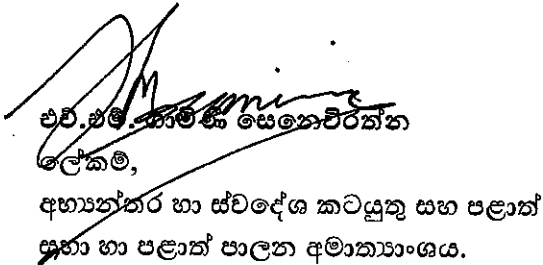 එච්.එම්. ගාමිණී සෙනෙවිරත්න
ලේකම්,
අභ්‍යන්තර හා ස්වදේශ කටයුතු සහ පළාත්
සභා හා පළාත් පාලන අමාත්‍යාංශය.